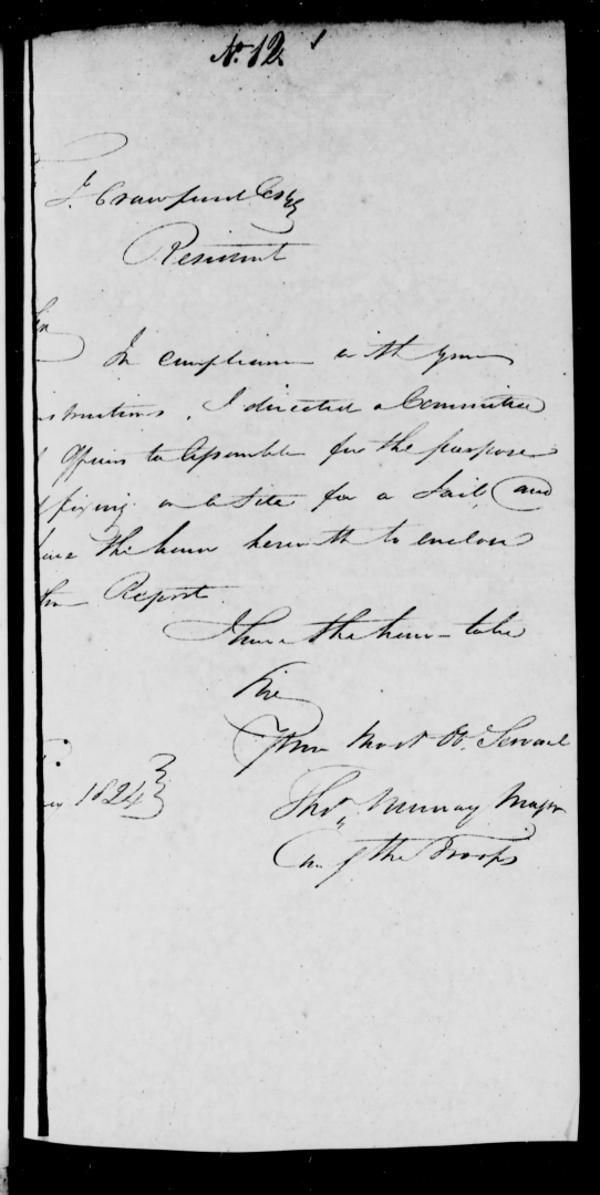 No. 12
J. Crawfurd Esq
Resident
Sir
In compliance with your
structions, I directed a Committee
Officers to Assemble for the purpose
fixing on a Site for a Jail, and
have the honor herewith to enclose
their Report.
I have the honor to be
Sir
Your Most Ob. Servant
1824
Thos. Murray Major
Com of the Troops